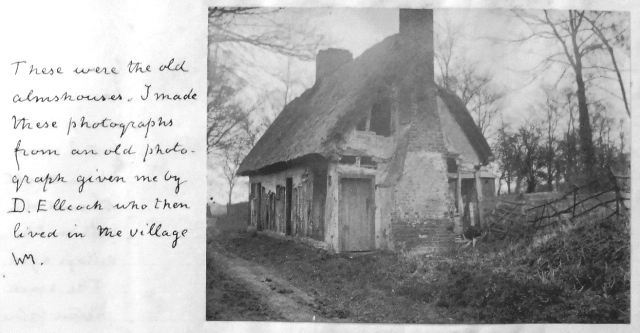 These were the old
almshouses. I made
these photographs
from an old photo-
graph given me by
D. Ellcock who then
lived in the village
WM.